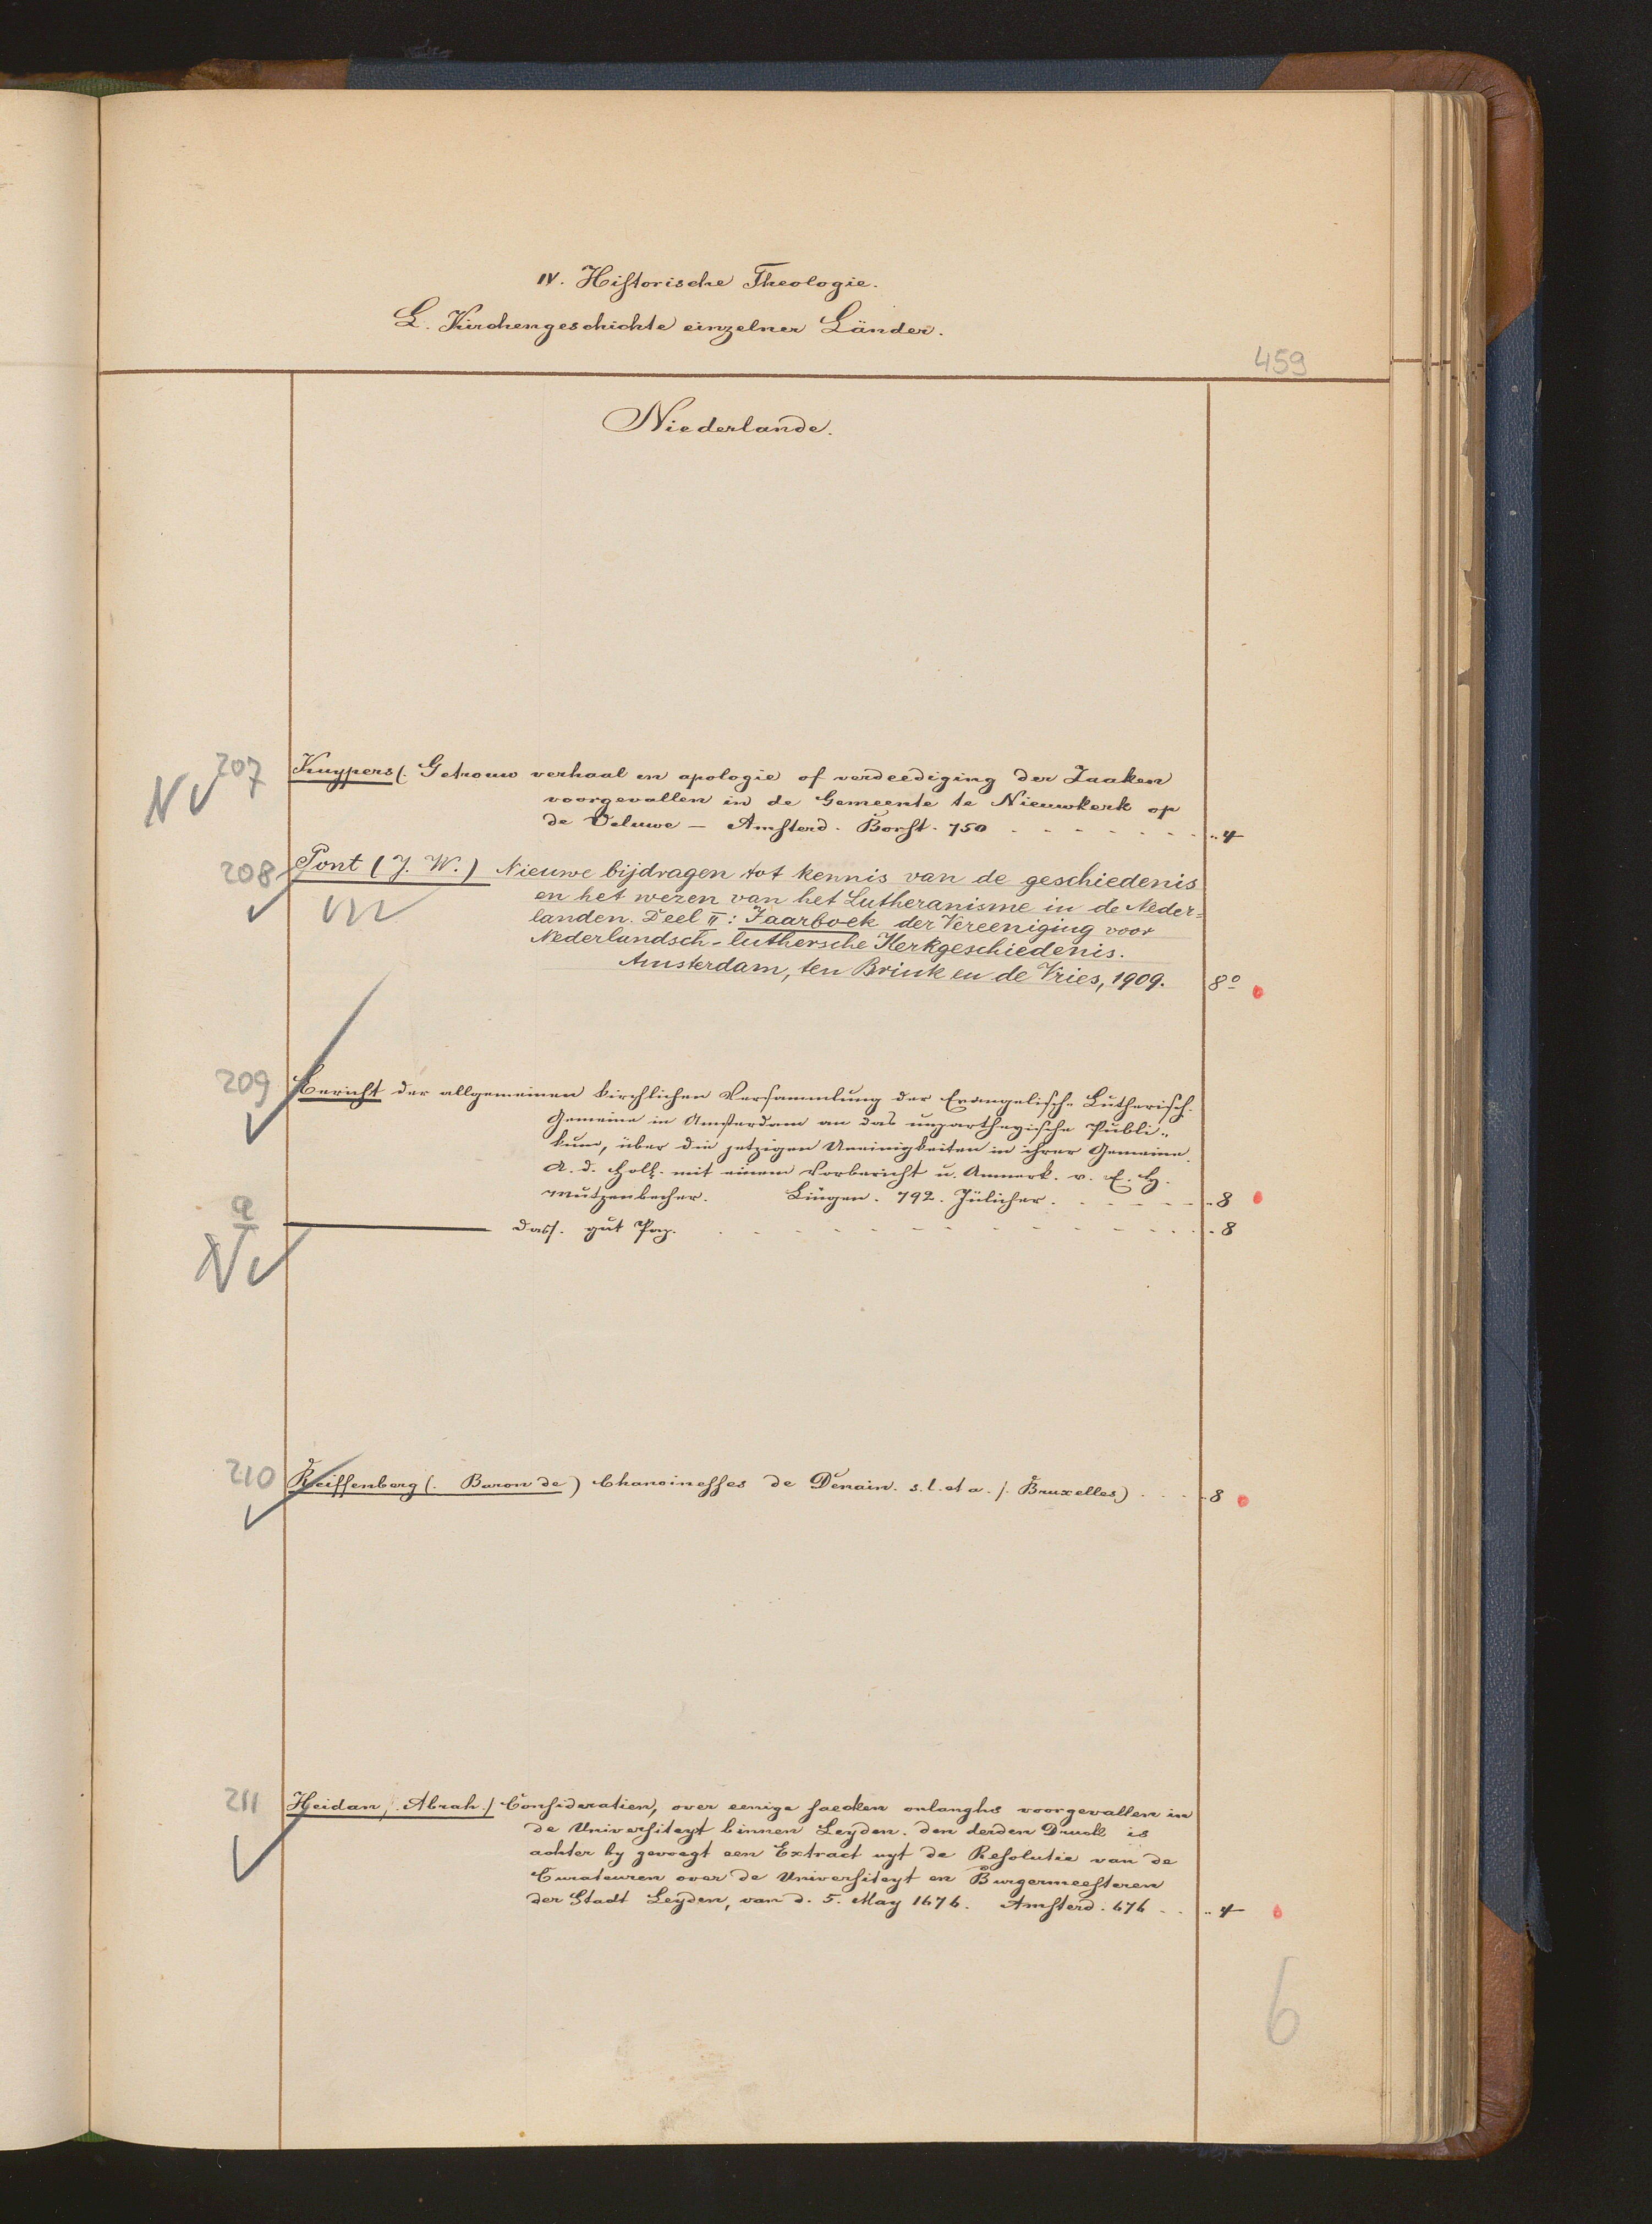 IV. Historische Theologie.
L. Kirchengeschichte einzelner Länder.
459
Niederlande.
207
Kuypers (. Getrouw verhaal en apologie of verdeediging der Zaaken
voorgevallen in de Gemeente te Nieuwkerk op
de Veluwe — Amsterd. Borst. 750 . . . . . . . . 4
208 Pont (J. W.) Nieuwe bijdragen tot kennis van de geschiedenis
en het wezen van het Lutheranisme in de Neder-
landen. Deel II: Jaarboek der Vereeniging voor
Nederlandsch-luthersche Kerkgeschiedenis.
Amsterdam, ten Brink en de Vries, 1909. 8°
209 Bericht der allgemeinen kirchlichen Versammlung der Evangelisch-Lutherisch.
Gemeine in Amsterdam an das unpartheyische Publi-
kum, über die jetzigen Uneinigkeiten in ihrer Gemeine.
A. d. Holl. mit einem Vorbericht u. Anmerk. v. E. H.
Mutzenbecher. Lingen. 792. Jülicher . . . . . . 8
a
dass. gut Pap. . . . . . . . . . . . . . . . 8
210 Reiffenberg (. Baron de) Chanoinesses de Denain. s. l. et a. /. Bruxelles) . . . . 8
211 Heidan /. Abrah./ Consideratien, over eenige saecken onlanghs voorgevallen in
de Universiteyt binnen Leyden. den derden Druck is
achter by gevoegt een Extract uyt de Resolutie van de
Curateuren over de Universiteyt en Burgermeesteren
der Stadt Leyden, van d. 5. May 1676. Amsterd. 676 . . . . 4
6